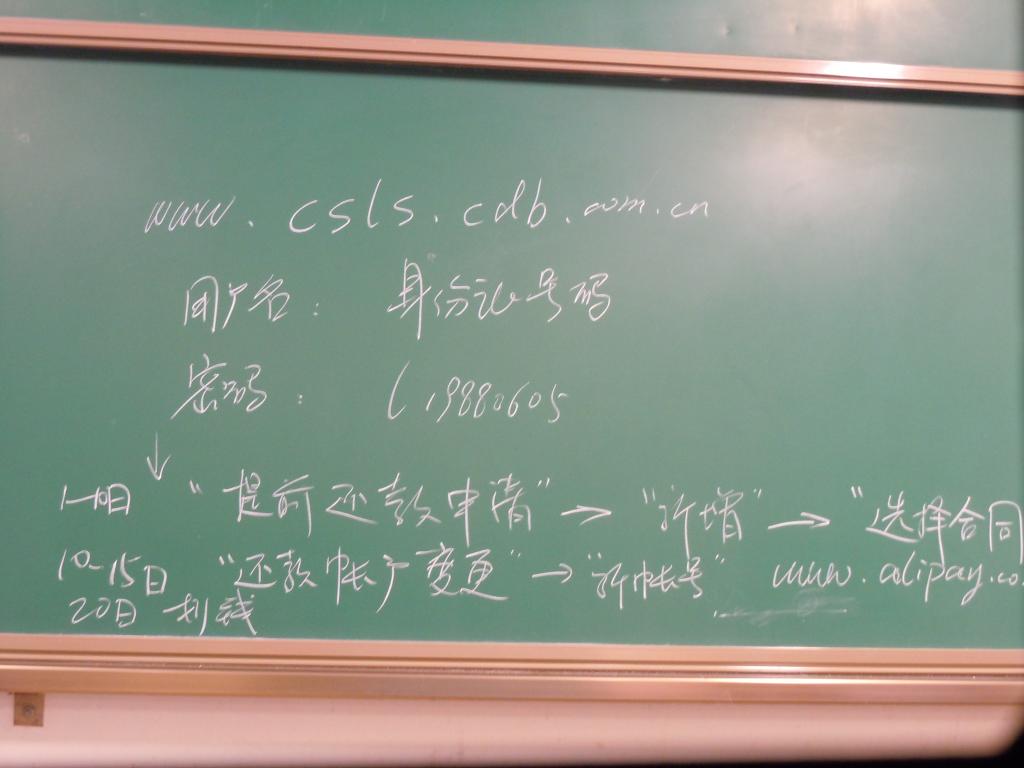 www.csls.cdb.com.cn
用户名：身份证号码
密码：(19880605
↓
1-10日 “提前还款申请” → “新增” → “选择合同
10-15日 “还款帐户变更” → “新帐号” www.alipay.co
20日 划钱